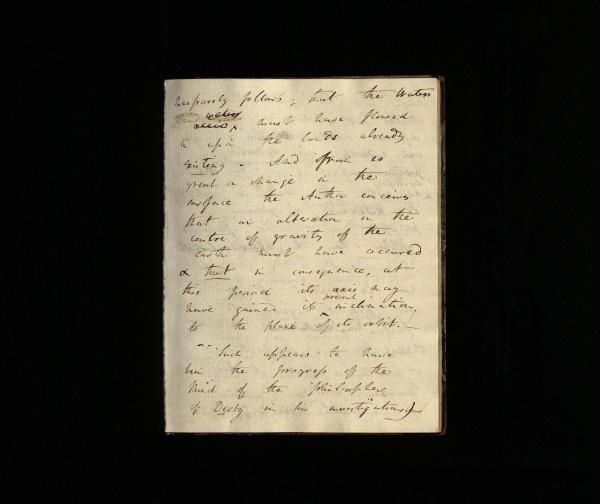 necessarily follows, that the Waters
must have flowed
in upon the lands already
existing. And from so
great a change in the
surface the Author conceives
that an alteration in the
centre of gravity of the
earth must have occured
& that in consequence, at
this period its axis may
have gained its present inclination,
to the plane of its orbit. —
Such appears to have
been the progress of the
Mind of the Philosopher
of Derby in his investigations)